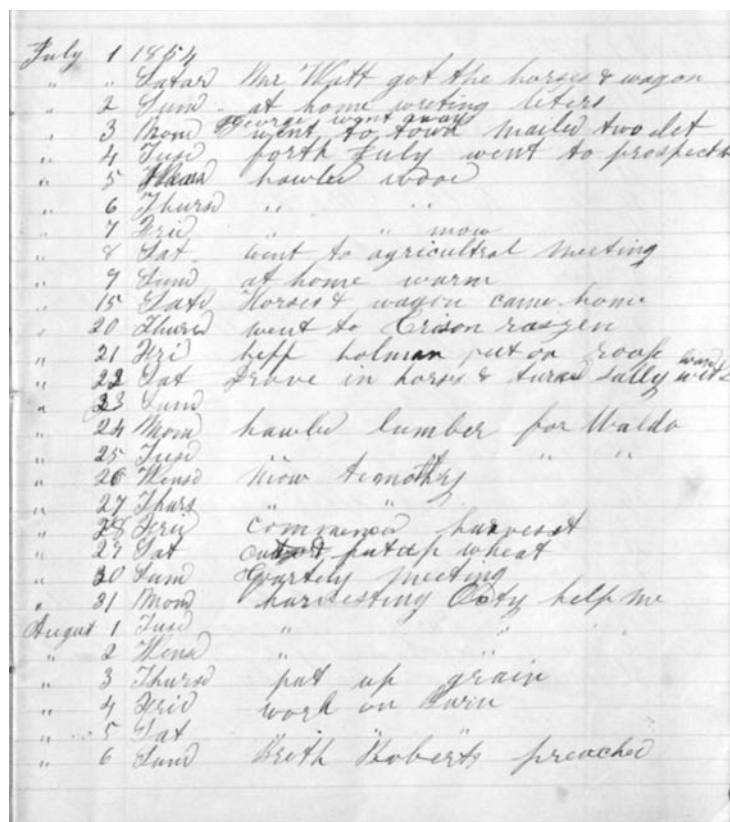 July 1 1854
" " Satar Mr Watt got the horses & wagon
" 2 Sund at home writing leters
George went away
" 3 Mond went to town mailed two let
" 4 Tusd forth July went to prospect
" 5 hawled wood
" 6 Thursd " "
" 7 Frid " " mow
" 8 Sat went to agricultral meeting
" 9 Sund at home warm
" 15 Satd Horses & wagon came home
" 20 Thursd went to
" 21 Fri holman put on roof
" 22 Sat Drove in horses & turnd Sally with
" 23 Sund
" 24 Mond hawled lumber for Waldo
" 25 Tusd " " "
" 26 Wensd Mow timothy
" 27 Thurs "
" 28 Frid Commenced harvest
" 29 Sat put up wheat
" 30 Sund Quartely meeting
" 31 Mond harvesting help me
August 1 Tusd " "
" 2 Wensd " "
" 3 Thursd put up grain
" 4 Frid work on Barn
" 5 Sat " "
" 6 Sund Broth Roberts preached